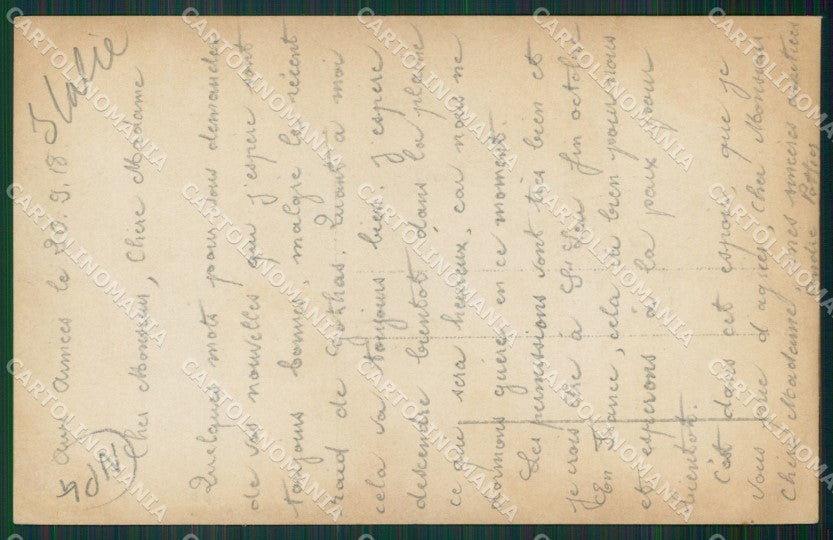 Italie
Aux armées le 20.9.18
Cher Monsieur, Chère Madame
Quelques mots pour vous demander
de vos nouvelles que j'espère sont
toujours bonnes, malgré le récent
raid de Gothas. Quant à moi
cela va toujours bien. J'espère
descendre bientôt dans la plaine
ce qui sera heureux, car nous ne
dormons guère en ce moment.
Les permissions vont très bien et
je crois être à St Leu fin octobre
En France, cela va bien pour nous
et espérons à la paix pour
bientôt.
C'est dans cet espoir, que je
vous prie d'agréer, Cher Monsieur
Chère Madame, mes sincères amitiés
CARTOLINOMANIA